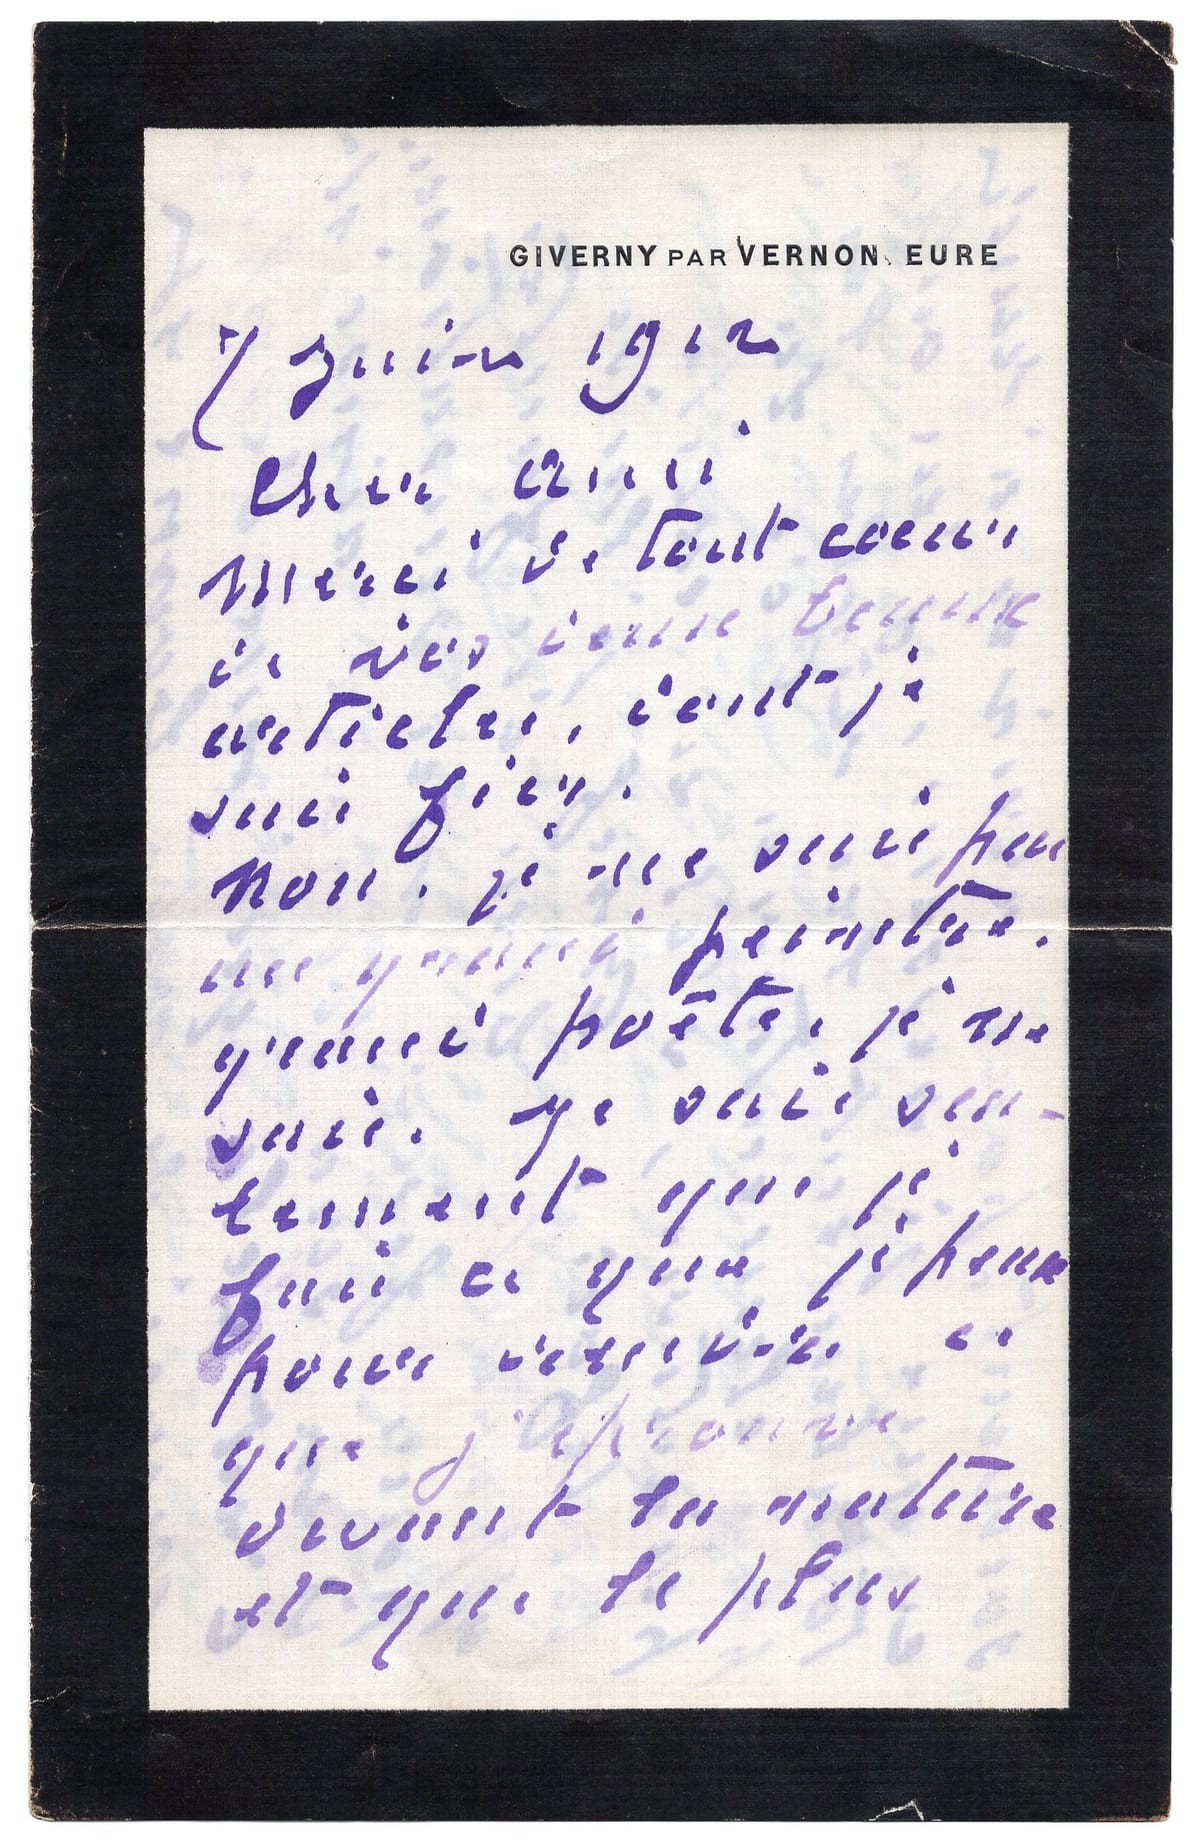 GIVERNY PAR VERNON. EURE
7 juin 1912
Cher ami
Merci de tout coeur
de vos deux beaux
articles, dont je
suis fier.
Non, je ne suis pas
un grand peintre.
grand poëte, je ne
sais. Je sais seu-
lement que je
fais ce que je peux
pour rendre ce
que j'éprouve
devant la nature
et que le plus